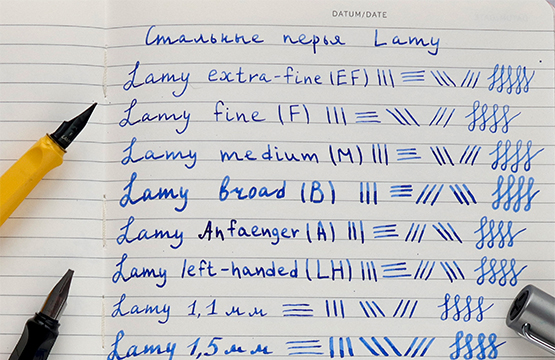 DATUM/DATE
Стальные перья Lamy
Lamy extra-fine (EF)
Lamy fine (F)
Lamy medium (M)
Lamy broad (B)
Lamy Anfaenger (A)
Lamy left-handed (LH)
Lamy 1,1 мм
Lamy 1,5 мм